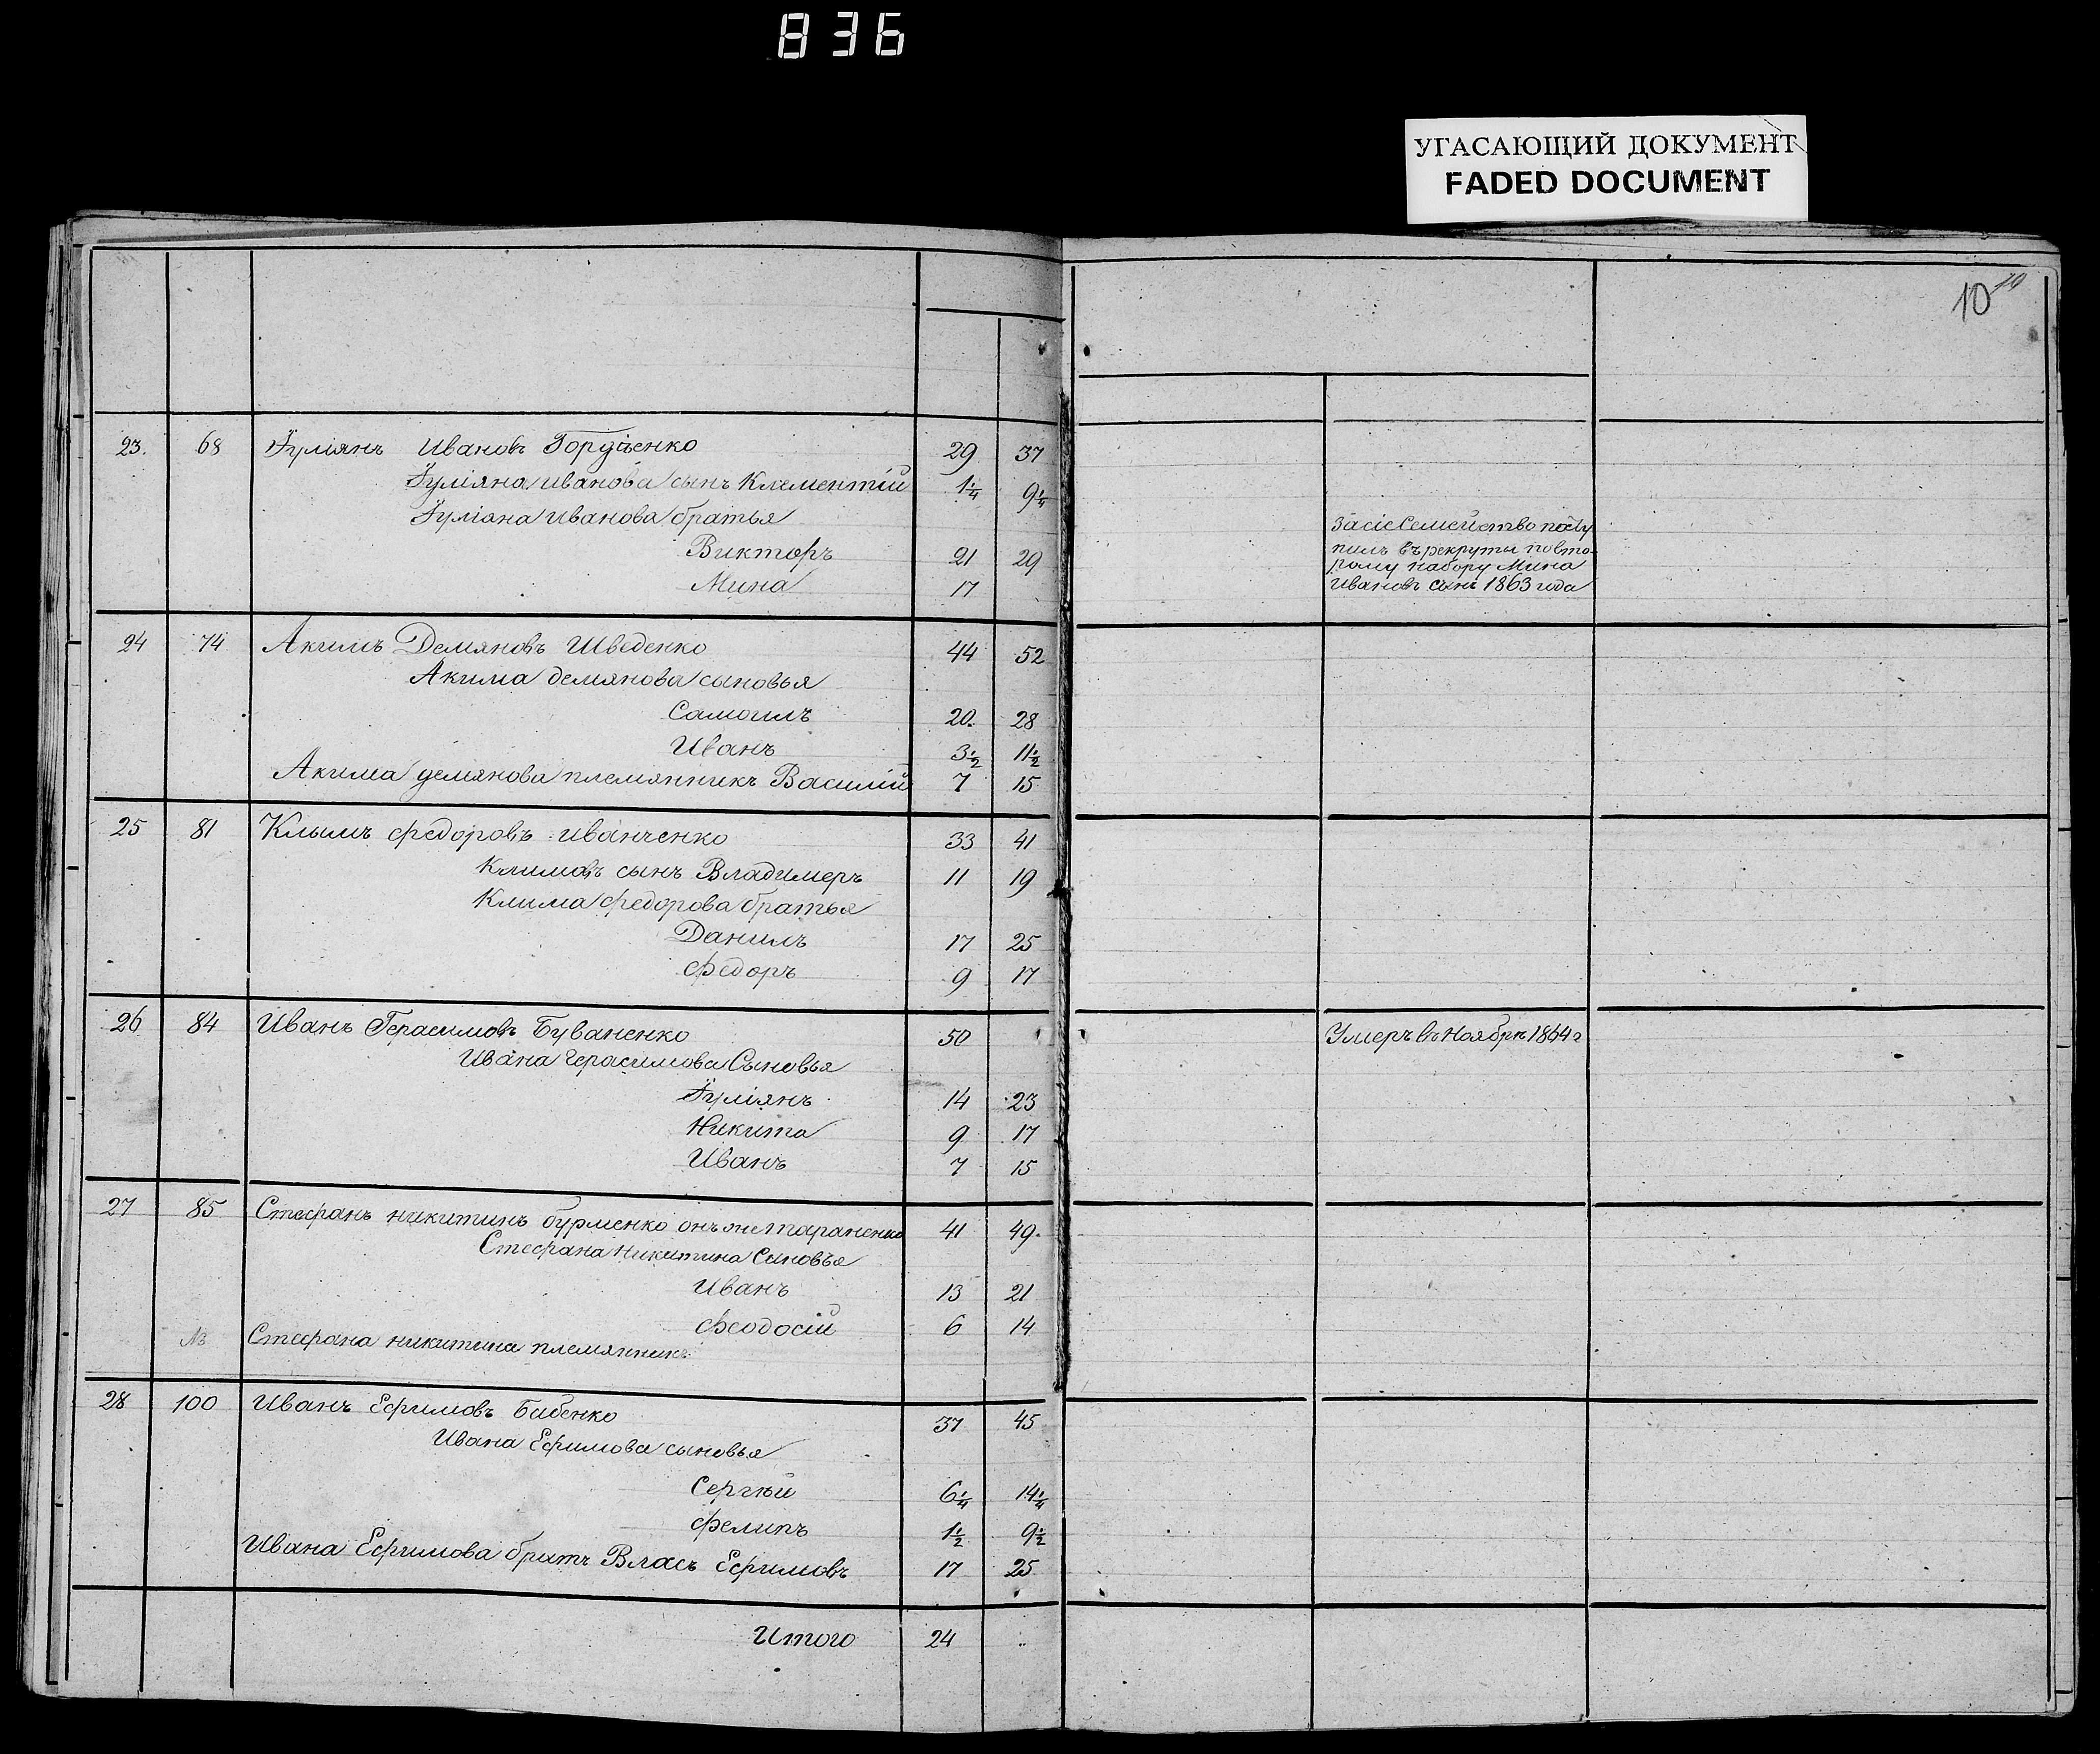 836
УГАСАЮЩИЙ ДОКУМЕНТ
FADED DOCUMENT
10 10
23. 68 Іуліянъ Ивановъ Горученко 29 37
Іуліяна Иванова сынъ Клементій 1¼ 9¼
Іуліана Иванова братья
Викторъ 21 29
Мина 17
За сіе Семейство посту
пилъ въ рекруты по вто-
рому набору Мина
Ивановъ сынъ 1863 года
24 74 Акимъ Демяновъ Шведенко 44 52
Акима демянова сыновья
Самоилъ 20. 28
Иванъ 3½ 11½
Акима демянова племянникъ Василій 7 15
25 81 Клымъ федоровъ иванченко 33 41
Климовъ сынъ Владимеръ 11 19
Клима федорова братья
Данилъ 17 25
Федоръ 9 17
26 84 Иванъ Герасимовъ Буваненко 50
Умеръ въ Ноябрѣ 1864 г
Ивана Герасимова Сыновья
Іуліянъ 14 23
Никита 9 17
Иванъ 7 15
27 85 Стефанъ никитинъ бурменко онъ же тараненко 41 49.
Стефана Никитина Сыновья
Иванъ 13 21
Феодосій 6 14
Стефана никитина племянникъ
28 100 Иванъ Ефимовъ Бабенко 37 45
Ивана Ефимова сыновья
Сергѣй 6¼ 14¼
Фелипъ 1½ 9½
Ивана Ефимова братъ Власъ Ефимовъ 17 25
Итого 24